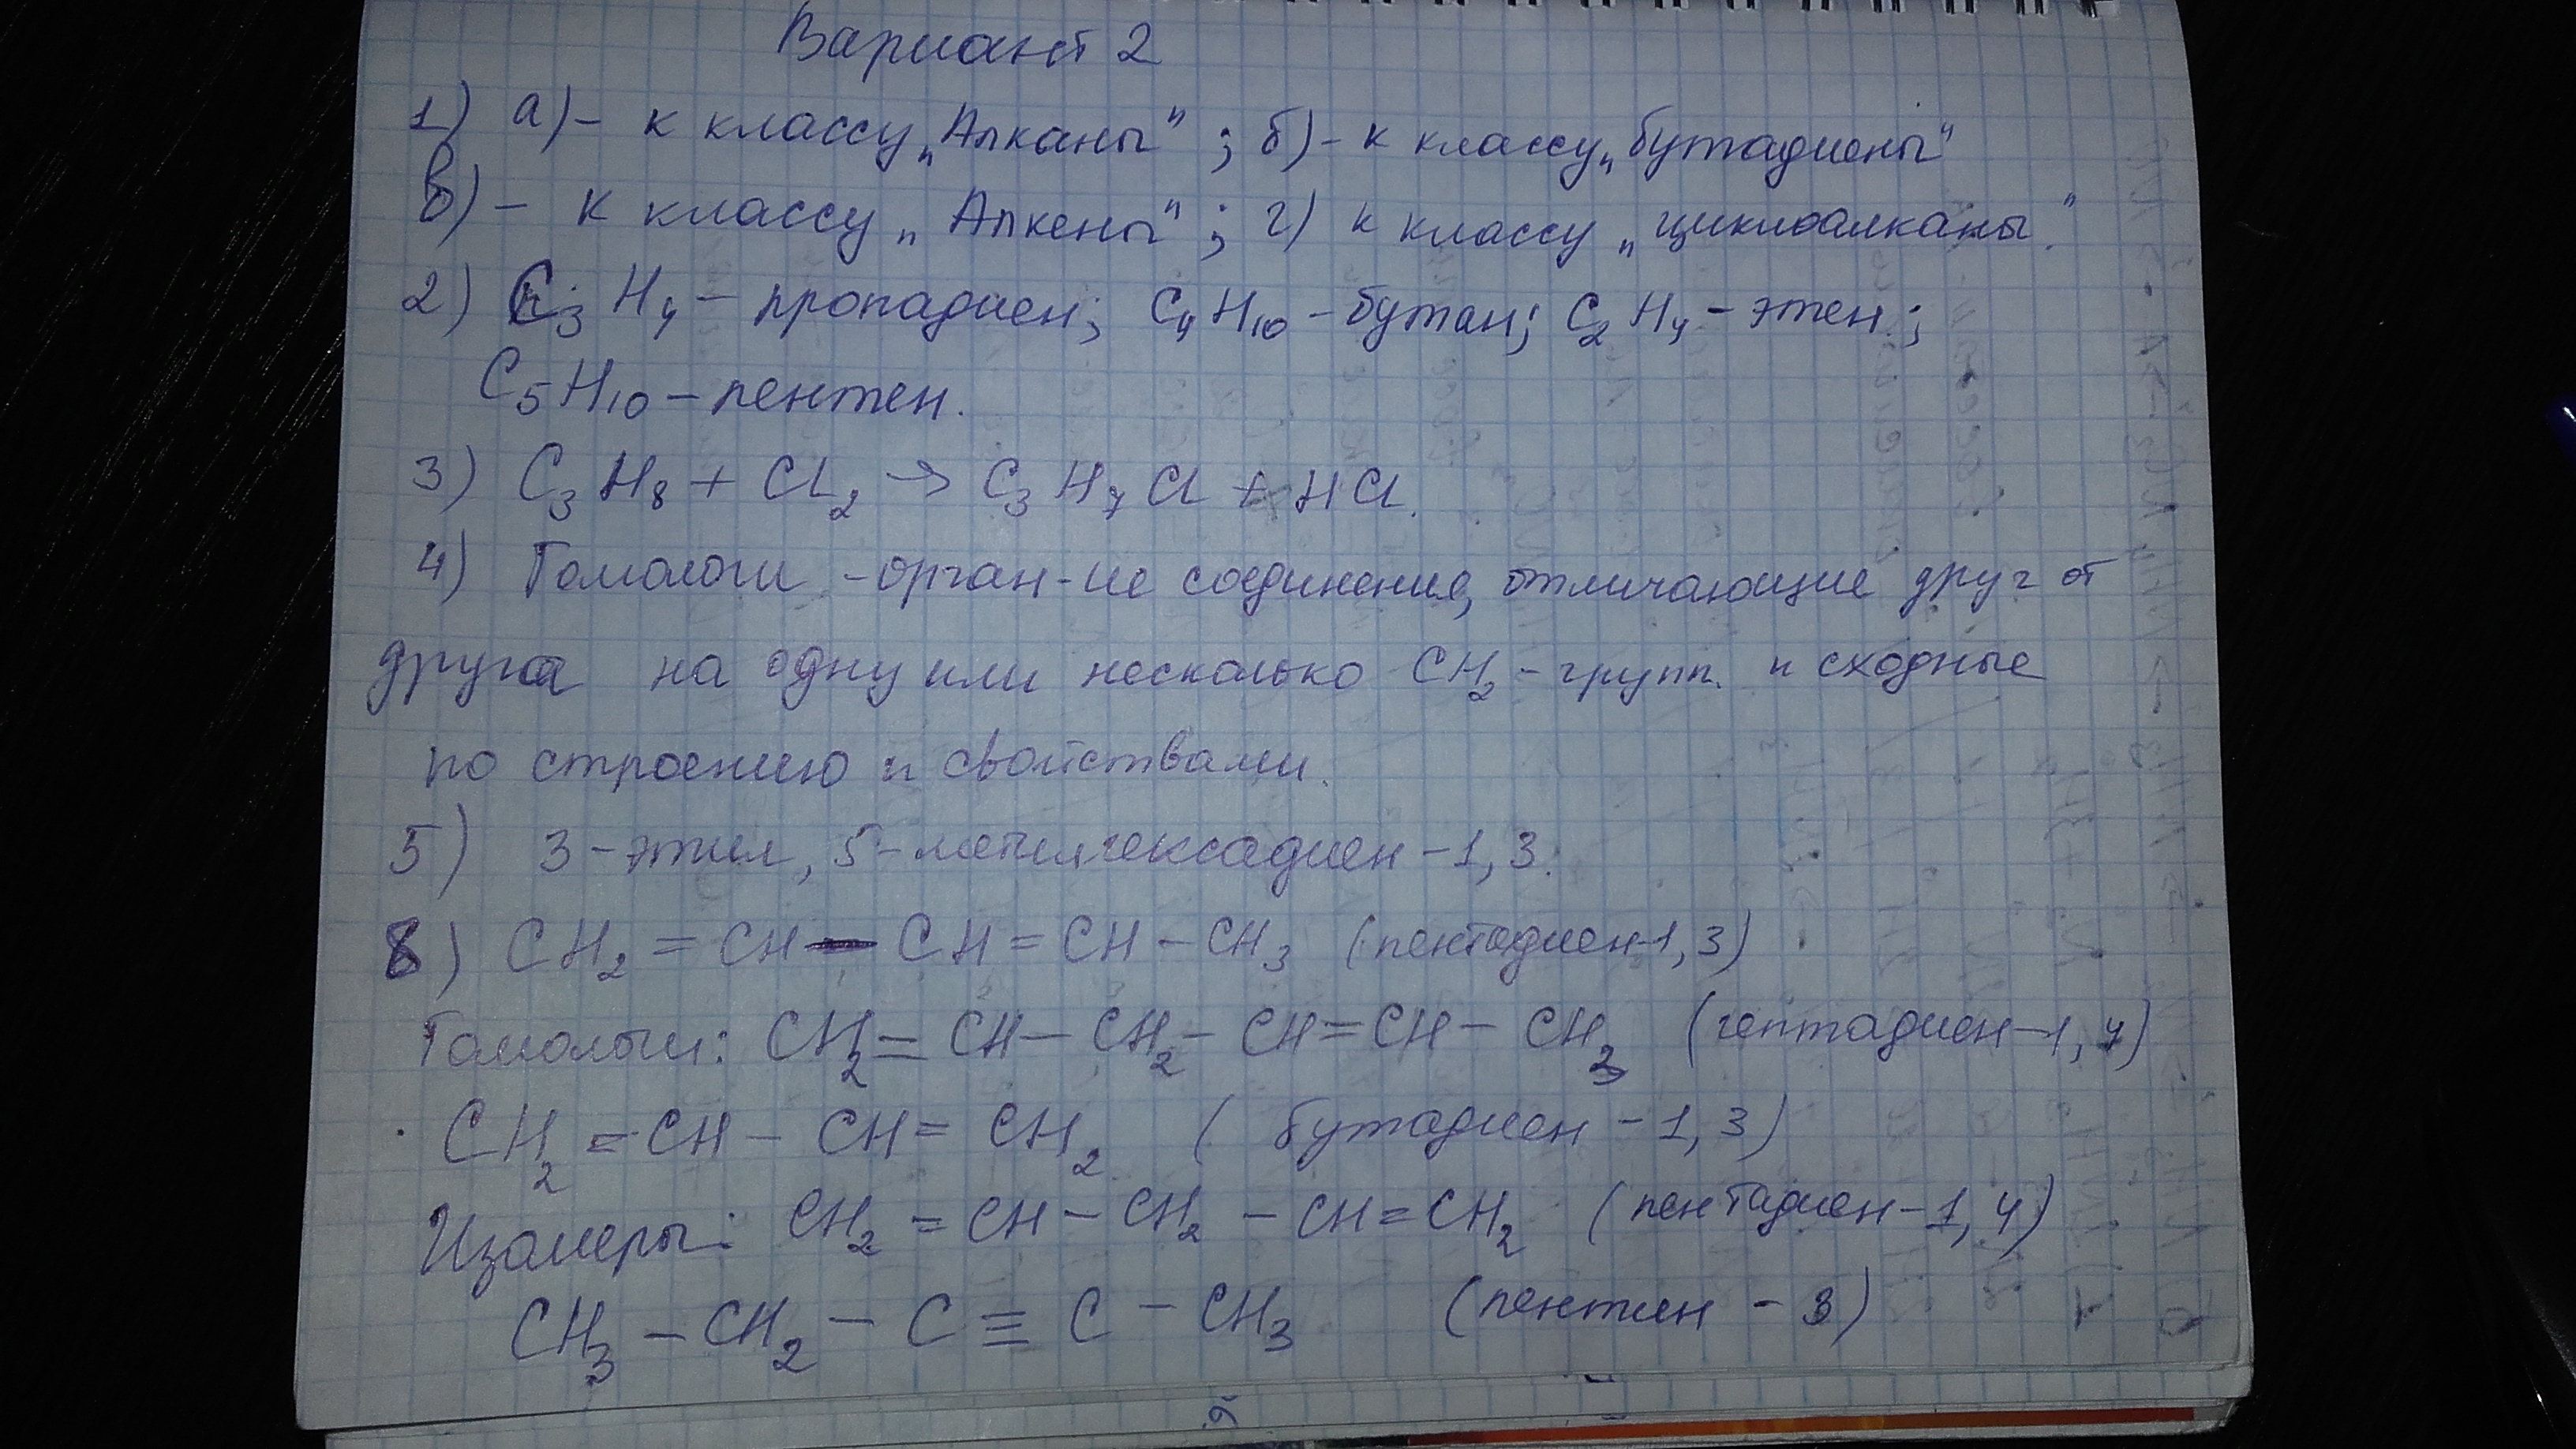 Вариант 2
1) а) – к классу „Алканы" ; б) – к классу „бутадиены"
в) – к классу „Алкены" ; г) к классу „циклоалканы".
2) C₃H₄ – пропадиен; C₄H₁₀ – бутан; C₂H₄ – этен;
C₅H₁₀ – пентен.
3) C₃H₈ + Cl₂ → C₃H₇Cl + HCl.
4) Гомологи – орган-ие соединения, отличающие друг от
друга на одну или несколько CH₂ – групп. и сходные
по строению и свойствами.
5) 3 – этил, 5 – метилгексадиен – 1, 3.
6) CH₂ = CH – CH = CH – CH₃ (пентадиен-1, 3)
Гомологи: CH₂ = CH – CH₂ – CH = CH – CH₃ (гептадиен – 1, 4)
CH₂ = CH – CH = CH₂ (бутадиен – 1, 3)
Изомеры: CH₂ = CH – CH₂ – CH = CH₂ (пентадиен – 1, 4)
CH₃ – CH₂ – C ≡ C – CH₃ (пентин – 3)